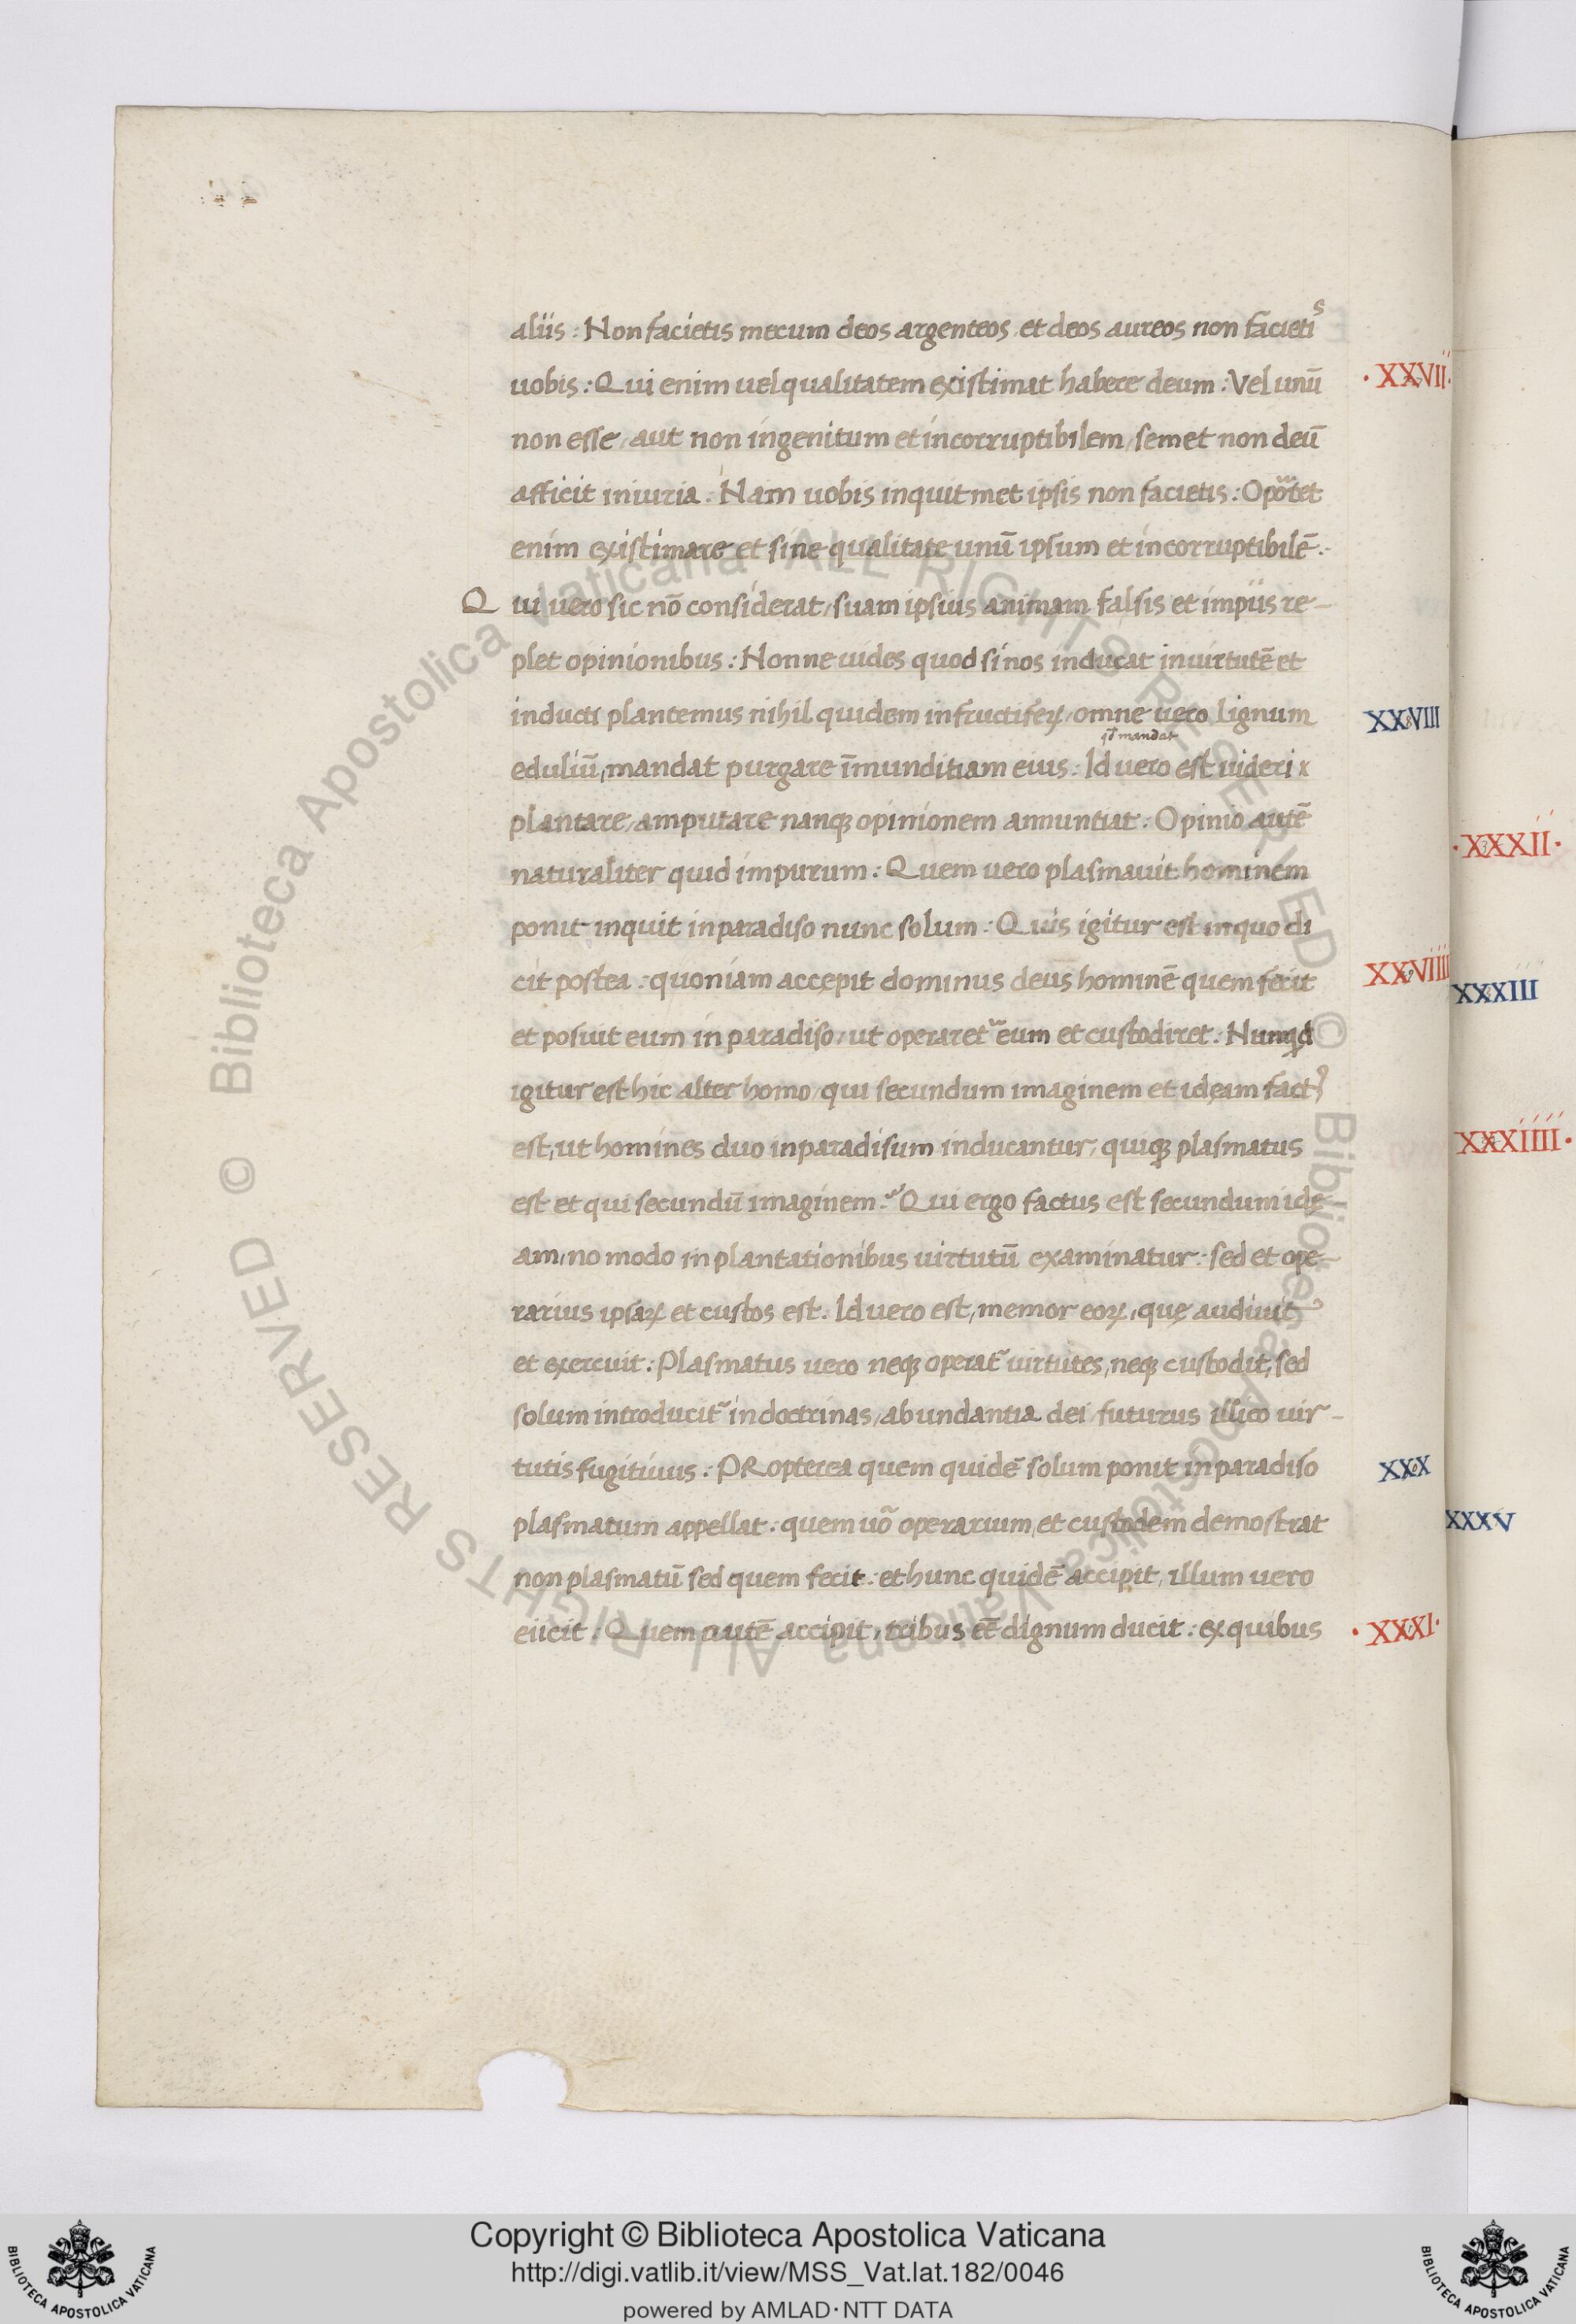 aliis : Non facietis mecum deos argenteos et deos aureos non facietis
uobis : Qui enim uel qualitatem existimat habere deum : Vel unū
non esse / aut non ingenitum et incorruptibilem / semet non deū
afficit iniuria : Nam uobis inquit met ipsis non facietis : Oportet
enim existimare et sine qualitate unū ipsum et incorruptibilē :
Qui uero sic nō considerat / suam ipsius animam falsis et impiis re-
plet opinionibus : Nonne uides quod si nos inducat in uirtutē et
inducti plantemus nihil quidem infructiferꝝ / omne uero lignum
qđ mandat
eduliū / mandat purgare īmunditiam eius : Id uero est uideri x
plantare / amputare nanqꝫ opinionem annuntiat : Opinio autē
naturaliter quid impurum : Quem uero plasmauit hominem
ponit inquit in paradiso nunc solum : Quis igitur est in quo di
cit postea : quoniam accepit dominus deus hominē quem fecit
et posuit eum in paradiso / ut operaret᷑ eum et custodiret : Nunqd
igitur est hic alter homo / qui secundum imaginem et ideam factꝰ
est / ut homines duo in paradisum inducantur / quiqꝫ plasmatus
est et qui secundū imaginem : Qui ergo factus est secundum idę
am / no modo in plantationibus uirtutū examinatur : sed et ope-
rarius ipsaꝝ et custos est . Id uero est / memor eoꝝ / quę audiuit
et exercuit : Plasmatus uero neqꝫ operat᷑ uirtutes / neqꝫ custodit / sed
solum introducit᷑ in doctrinas / abundantia dei / futurus illico uir-
tutis fugitiuus : PRopterea quem quidē solum ponit in paradiso
plasmatum appellat : quem uō operarium / et custodem demostrat
non plasmatū sed quem fecit : et hunc quidē accipit / illum uero
eiicit : Quem autē accipit / tribus eē dignum ducit : ex quibus
· XXVII ·
XXVIII
XXVIIII
XXX
· XXXI ·
· XXXII ·
XXXIII
XXXIIII ·
XXXV
© Biblioteca Apostolica Vaticana ALL RIGHTS RESERVED © Biblioteca Apostolica Vaticana ALL RIGHTS RESERVED
Copyright © Biblioteca Apostolica Vaticana
http://digi.vatlib.it/view/MSS_Vat.lat.182/0046
powered by AMLAD·NTT DATA
BIBLIOTECA APOSTOLICA VATICANA
BIBLIOTECA APOSTOLICA VATICANA